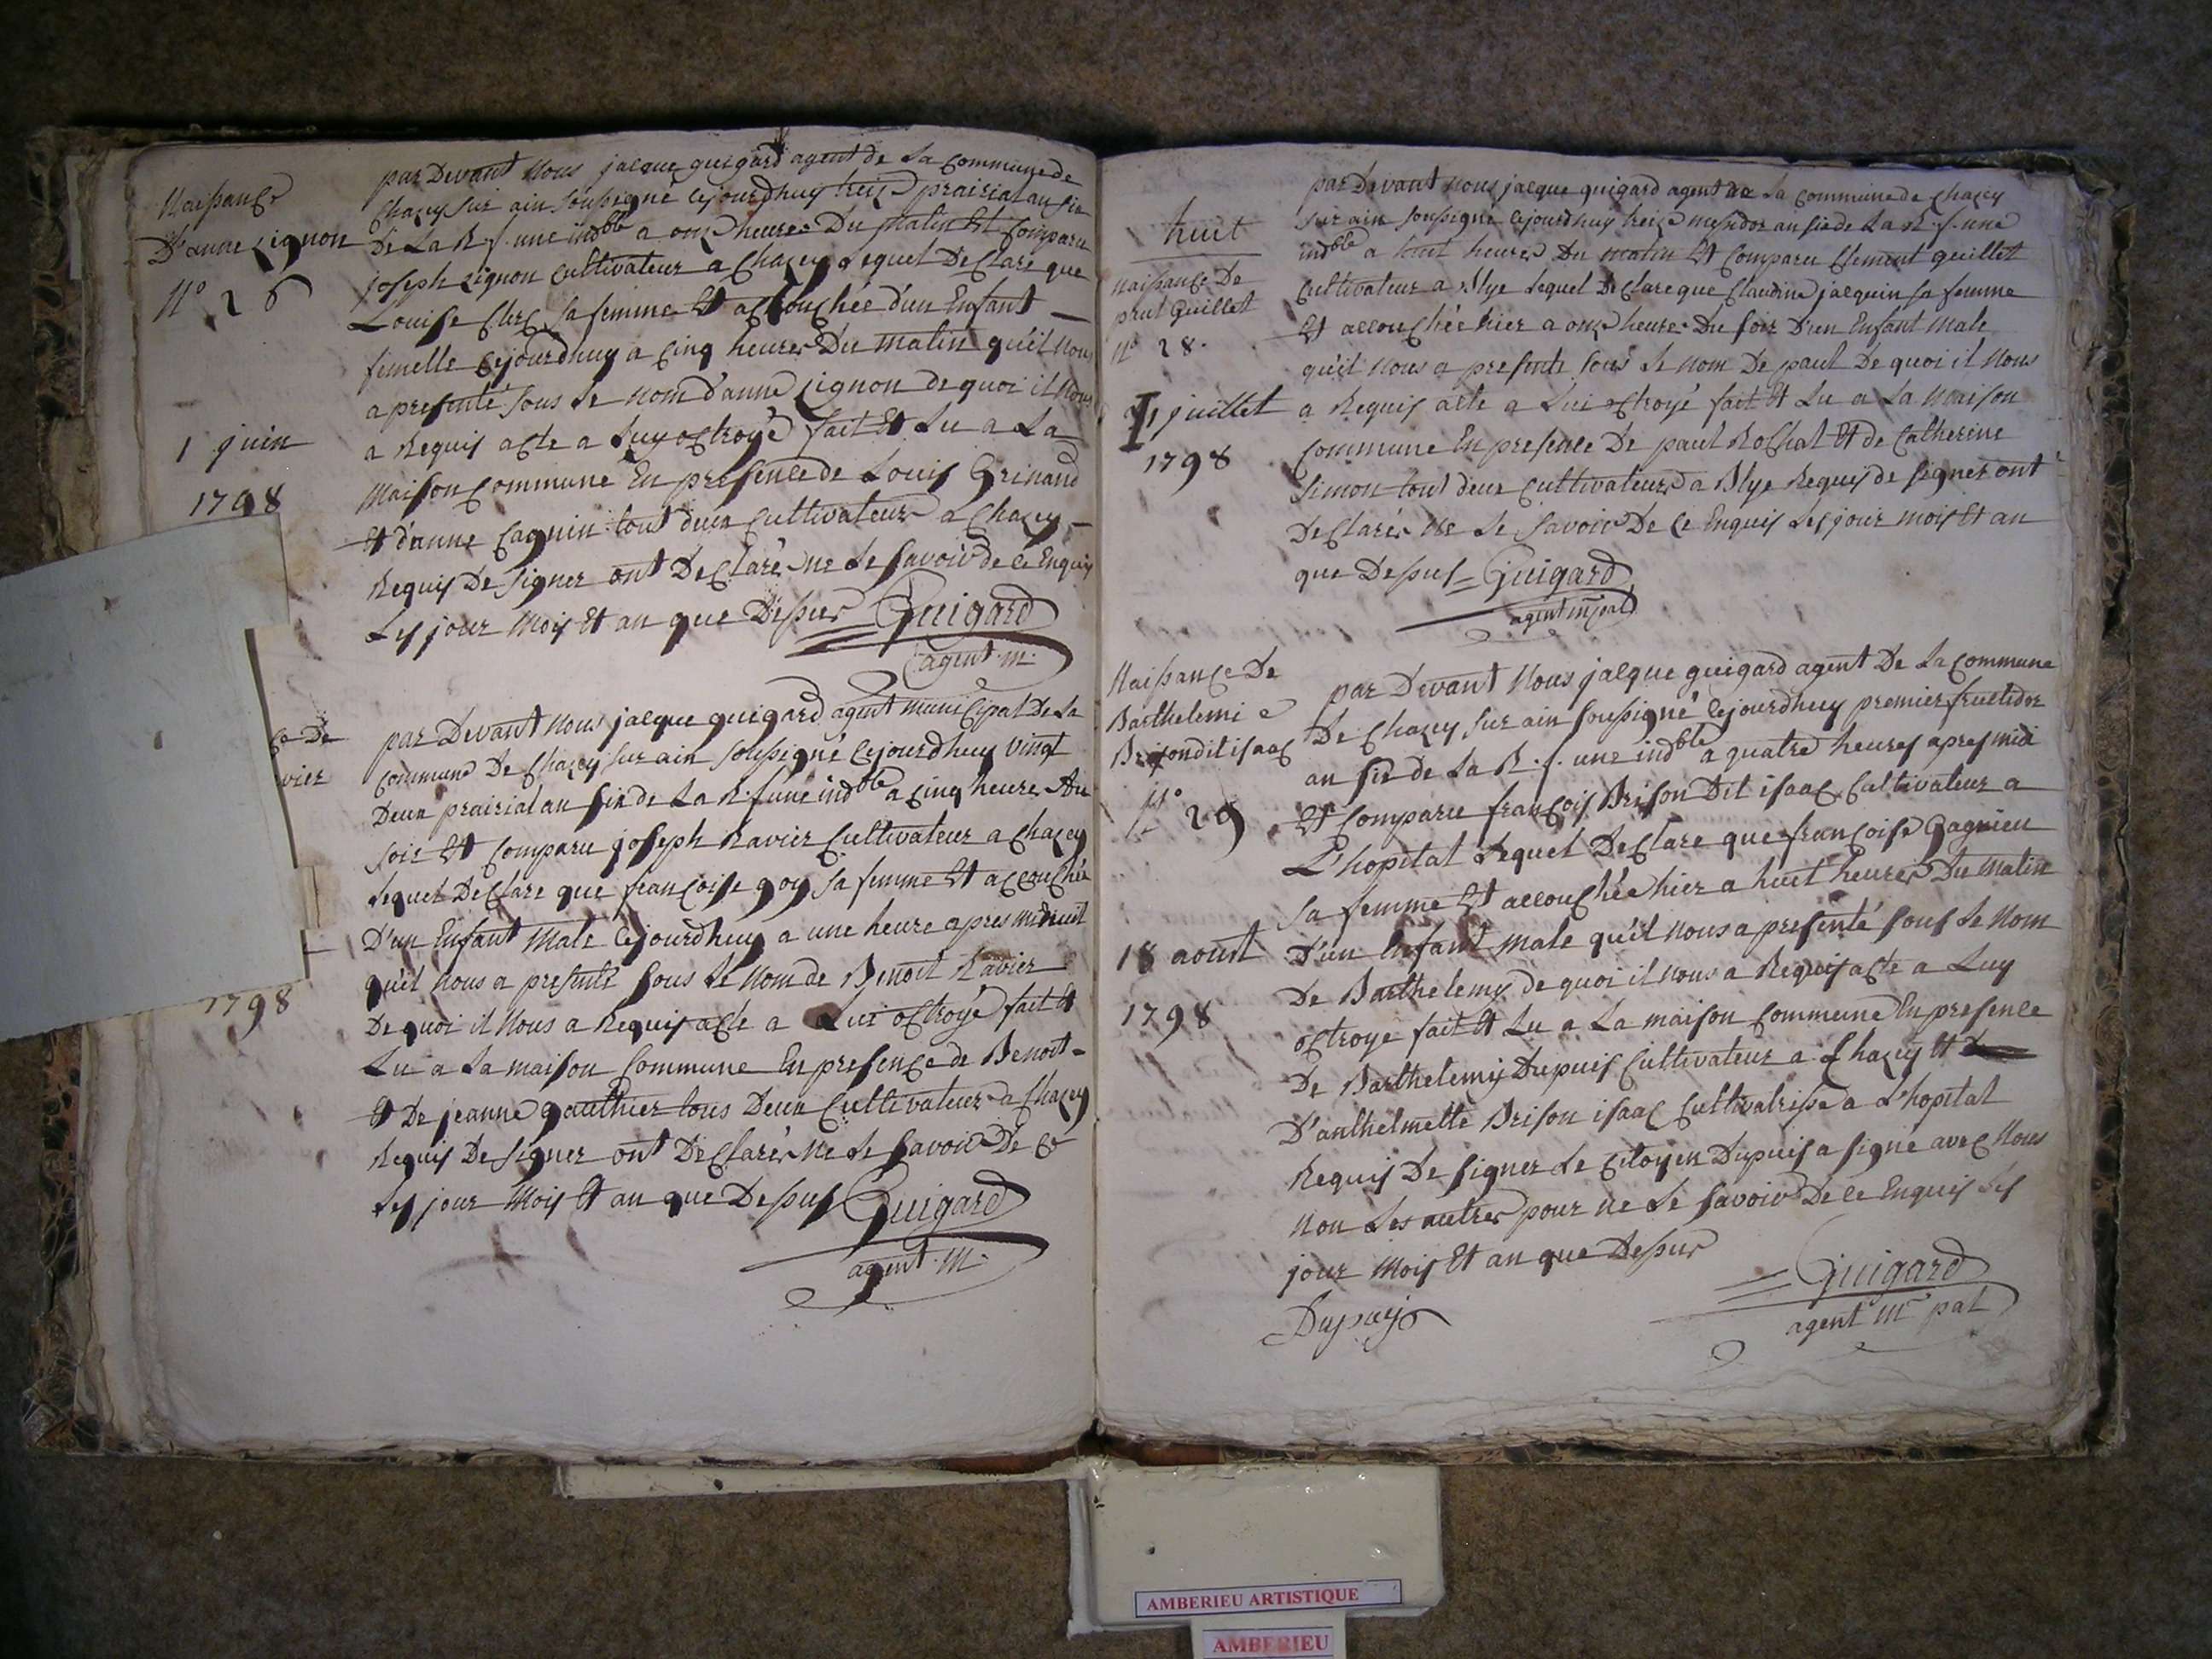 Naissance
D'anne Lignon
N° 26
1 juin
1798
par Devant Nous jacque guigard agent de La Commune de
Chazey sur ain soussigné cejourdhuy treize prairial an six
De La R. f. une indble a onze heures Du Matin Et Comparu
joseph Lignon Cultivateur a Chazey Lequel Declare que
Louise Clerc sa femme Et accouchée d'un Enfant
femelle cejourdhuy a cinq heures Du matin qu'il nous
a presenté sous Le nom d'anne Lignon de quoi il Nous
a Requis acte a Luy octroyé fait Et Lu a La
Maison Commune En presence de Louis Grinand
Et d'anne Cagnin tout deux Cultivateurs a Chazey
Requis De signer ont Declaré ne Le savoir de ce Enquis
Les jour Mois Et an que Dessus Guigard
agent m.
ce De
vier
1798
par Devant nous jacque guigard agent municipal De La
Commune De Chazey sur ain soussigné cejourdhuy vingt
Deux prairial an six de La R. f. une indble a cinq heures Du
soir Et Comparu joseph Ravier Cultivateur a Chazey
Lequel Declare que françoise goy sa femme Et accouchée
D'un Enfant Male cejourdhuy a une heure apres minuit
qu'il nous a presenté sous Le Nom de Benoit Ravier
De quoi il Nous a Requis acte a Lui octroyé fait Et
Lu a La maison Commune En presence de Benoit
Et De jeanne gauthier tous Deux Cultivateurs a Chazey
Requis De signer ont Declarés ne Le savoir De ce
Les jour Mois Et an que Dessus Guigard
agent M.
huit
naissance De
Guillet
N° 28.
1 juillet
1798
par Devant nous jacque guigard agent de La Commune de Chazey
sur ain soussigné cejourdhuy treize messidor an six de La R. f. une
indble a huit heures Du matin Et Comparu Clement guillet
Cultivateur a Blye Lequel Declare que Claudine jacquin sa femme
Et accouchée hier a onze heures Du soir D'un Enfant Male
qu'il nous a presenté sous Le nom De paul De quoi il Nous
a Requis acte a Lui octroyé fait Et Lu a La Maison
Commune En presence De paul Rochat Et de Catherine
Simon tout deux Cultivateurs a Blye Requis de signer ont
Declarés ne Le savoir De ce Enquis Les jour mois Et an
que Dessus Guigard
agent m̄pal
Naissance De
Barthelemi
Brison dit isaac
N° 29
18 aout
1798
par Devant Nous jacque guigard agent De La Commune
De Chazey sur ain soussigné cejourdhuy premier fructidor
an six de La R. f. une indble a quatre heures apres midi
Et Comparu françois Brison Dit isaac Cultivateur a
L'hopital Lequel Declare que françoise Gagnieu
sa femme Et accouchée hier a huit heures Du Matin
D'un Enfant male qu'il nous a presenté sous Le Nom
De Barthelemy de quoi il nous a Requis acte a Luy
octroye fait Et Lu a La maison Commune En presence
De Barthelemy Dupuis Cultivateur a Chazey Et
D'anthelmette Brison isaac Cultivatrisse a L'hopital
Requis De signer Le citoyen Dupuis a signé avec Nous
Non Les autres pour ne Le savoir De ce Enquis Les
jour Mois Et an que Dessus
Guigard
agent mr pal
Dupuy
AMBERIEU ARTISTIQUE
AMBERIEU